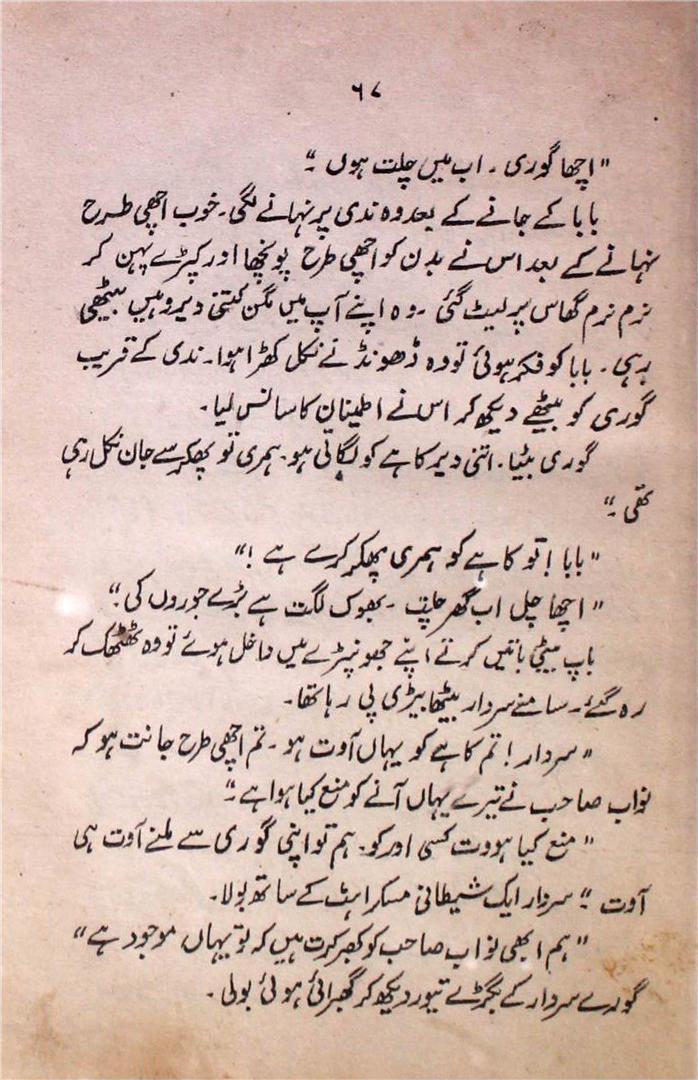 ۶۷
"اچھا گوری ۔ اب میں چلت ہوں ۔"
بابا کے جانے کے بعد وہ ندی پر نہانے لگی۔ خوب اچھی طرح
نہانے کے بعد اس نے بدن کو اچھی طرح پونچھا اور کپڑے پہن کر
نرم نرم گھاس پر لیٹ گئی ۔ وہ اپنے آپ میں مگن کتنی دیر وہیں بیٹھی
رہی ۔ بابا کو فکر ہوئی تو وہ ڈھونڈنے نکل کھڑا ہوا۔ ندی کے قریب
گوری کو بیٹھے دیکھ کر اس نے اطمینان کا سانس لیا۔
گوری بٹیا۔ اتنی دیر کاہے کو لگائی ہو۔ ہمری تو پھکر سے جان نکل رہی
تھی ۔"
"بابا ! تو کاہے کو ہمری پھکر کرے ہے !"
"اچھا چل اب گھر چلت ۔ بھوک لگت ہے بڑے جوروں کی ۔"
باپ بیٹی باتیں کرتے اپنے جھونپڑے میں داخل ہوئے تو وہ ٹھٹھک کر
رہ گئے ۔ سامنے سردار بیٹھا بیڑی پی رہا تھا۔
"سردار ! تم کاہے کو یہاں آوت ہو ۔ تم اچھی طرح جانت ہو کہ
نواب صاحب نے تیرے یہاں آنے کو منع کیا ہوا ہے ۔"
"منع کیا ہووت کسی اور کو۔ ہم تو اپنی گوری سے ملنے آوت ہی
آوت ۔" سردار ایک شیطانی مسکراہٹ کے ساتھ بولا۔
"ہم ابھی نواب صاحب کو کھبر کرت ہیں کہ تو یہاں موجود ہے"
گورے سردار کے بگڑے تیور دیکھ کر گھبرائی ہوئی بولی ۔